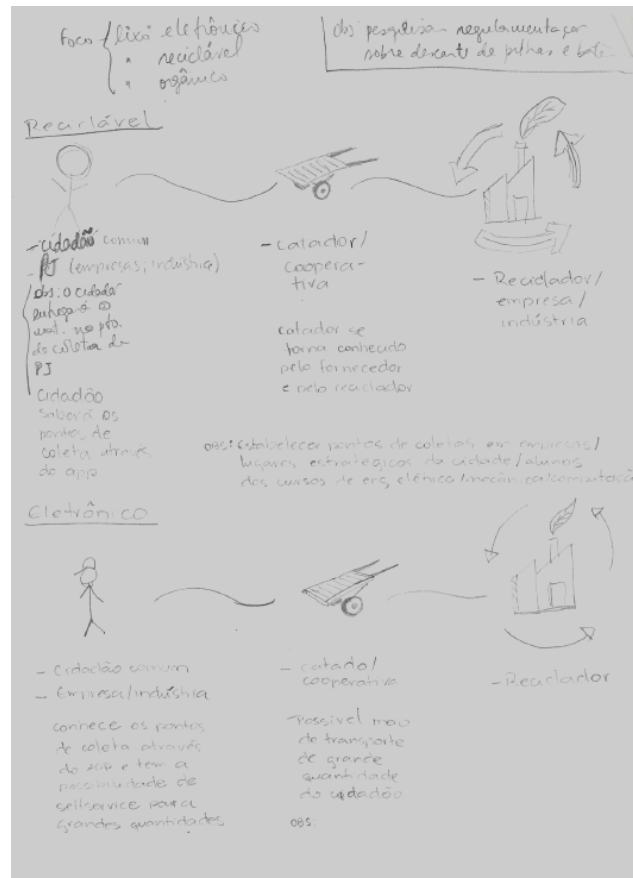 Foco { lixo eletrônico
" reciclável
" orgânico
obs pesquisar regulamentaçao
sobre descarte de pilhas e
Reciclável
- cidadão comum
- PJ (empresas; indústria)
obs: o cidadão
entregará o
mat. no pto.
de coleta da
PJ
Cidadão
saberá os
pontos de
coleta através
do app
- catador/
coopera-
tiva
catador se
torna conhecido
pelo fornecedor
e pelo reciclador
- Reciclador/
empresa/
indústria
OBS: Estabelecer pontos de coletas em empresas/
lugares estratégicos da cidade/alunos
dos cursos de eng. elétrica/mecânica/computação
Eletrônico
- Cidadão comum
- Empresa/indústria
conhece os pontos
de coleta através
do app e tem a
possibilidade de
sellservice para
grandes quantidades
- catado/
cooperativa
- Possível meio
de transporte
de grande
quantidade
do cidadão
OBS:
- Reciclador